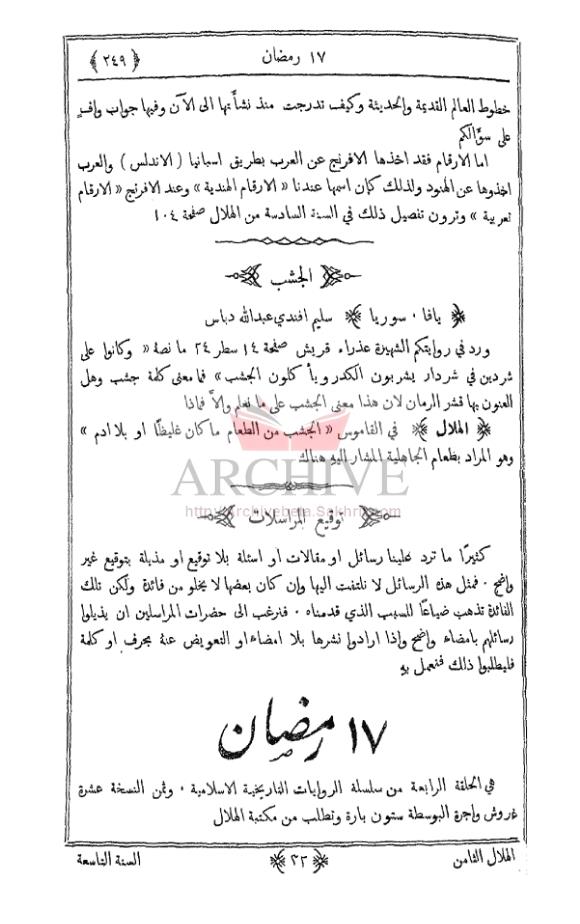 ١٧ رمضان
﴿ ٢٤٩ ﴾
خطوط العالم القديمة والحديثة وكيف تدرجت منذ نشأتها الى الآن وفيها جواب وافٍ
على سؤالكم
اما الارقام فقد اخذها الافرنج عن العرب بطريق اسبانيا ( الاندلس ) والعرب
اخذوها عن الهنود ولذلك كان اسمها عندنا « الارقام الهندية » وعند الافرنج « الارقام
العربية » وترون تفصيل ذلك في السنة السادسة من الهلال صفحة ١٠٤
﴿ الجشب ﴾
﴿ يافا . سوريا ﴾ سليم افندي عبدالله دباس
ورد في روايتكم الشهيرة عذراء قريش صفحة ١٤ سطر ٢٤ ما نصهُ « وكانوا على
شردين في شردار يشربون الكدر ويأكلون الجشب » فما معنى كلمة جشب وهل
المعنون بها قشر الرمان لان هذا معنى الجشب على ما نعلم والاَّ فماذا
﴿ الهلال ﴾ في القاموس « الجشب من الطعام ما كان غليظًا او بلا ادم »
وهو المراد بطعام الجاهلية المشار اليهِ هناك
ARCHIVE
http://Archivebeta.Sakhrit.com
﴿ توقيع المراسلات ﴾
كثيرًا ما ترد علينا رسائل او مقالات او اسئلة بلا توقيع او مذيلة بتوقيع غير
واضح . فمثل هذه الرسائل لا نلتفت اليها وإن كان بعضها لا يخلو من فائدة ولكن تلك
الفائدة تذهب ضياعًا للسبب الذي قدمناه . فنرغب الى حضرات المراسلين ان يذيلوا
رسائلهم بامضاء واضح واذا ارادوا نشرها بلا امضاء او التعويض عنهُ بحرف او كلمة
فليطلبوا ذلك فنعمل بهِ
١٧ رمضان
هي الحلقة الرابعة من سلسلة الروايات التاريخية الاسلامية . وثمن النسخة عشرة
غروش واجرة البوسطة ستون بارة وتطلب من مكتبة الهلال
الهلال الثامن
﴿ ٣٢ ﴾
السنة التاسعة